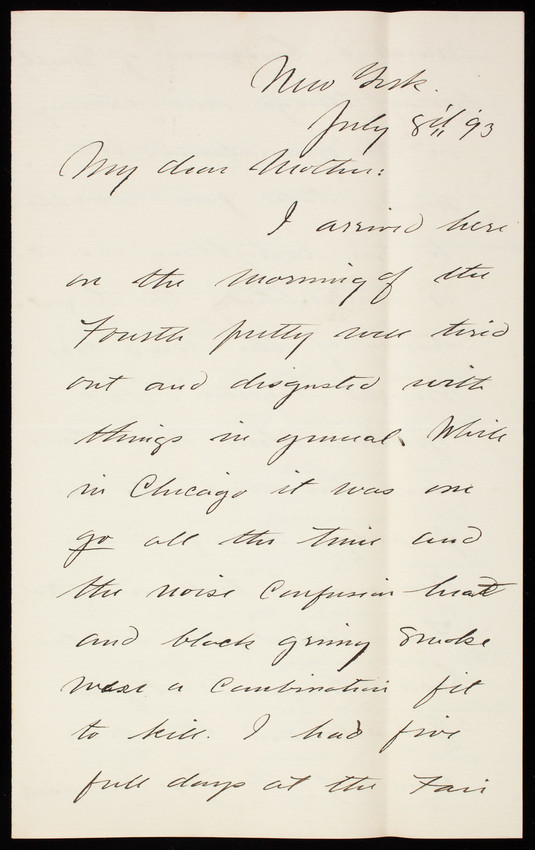 New York.
July 8th '93
My dear Mother:
I arrived here
on the morning of the
Fourth pretty well tired
out and disgusted with
things in general. While
in Chicago it was one
go all the time and
the noise confusion heat
and black grimy smoke
were a combination fit
to kill. I had five
full days at the Fair